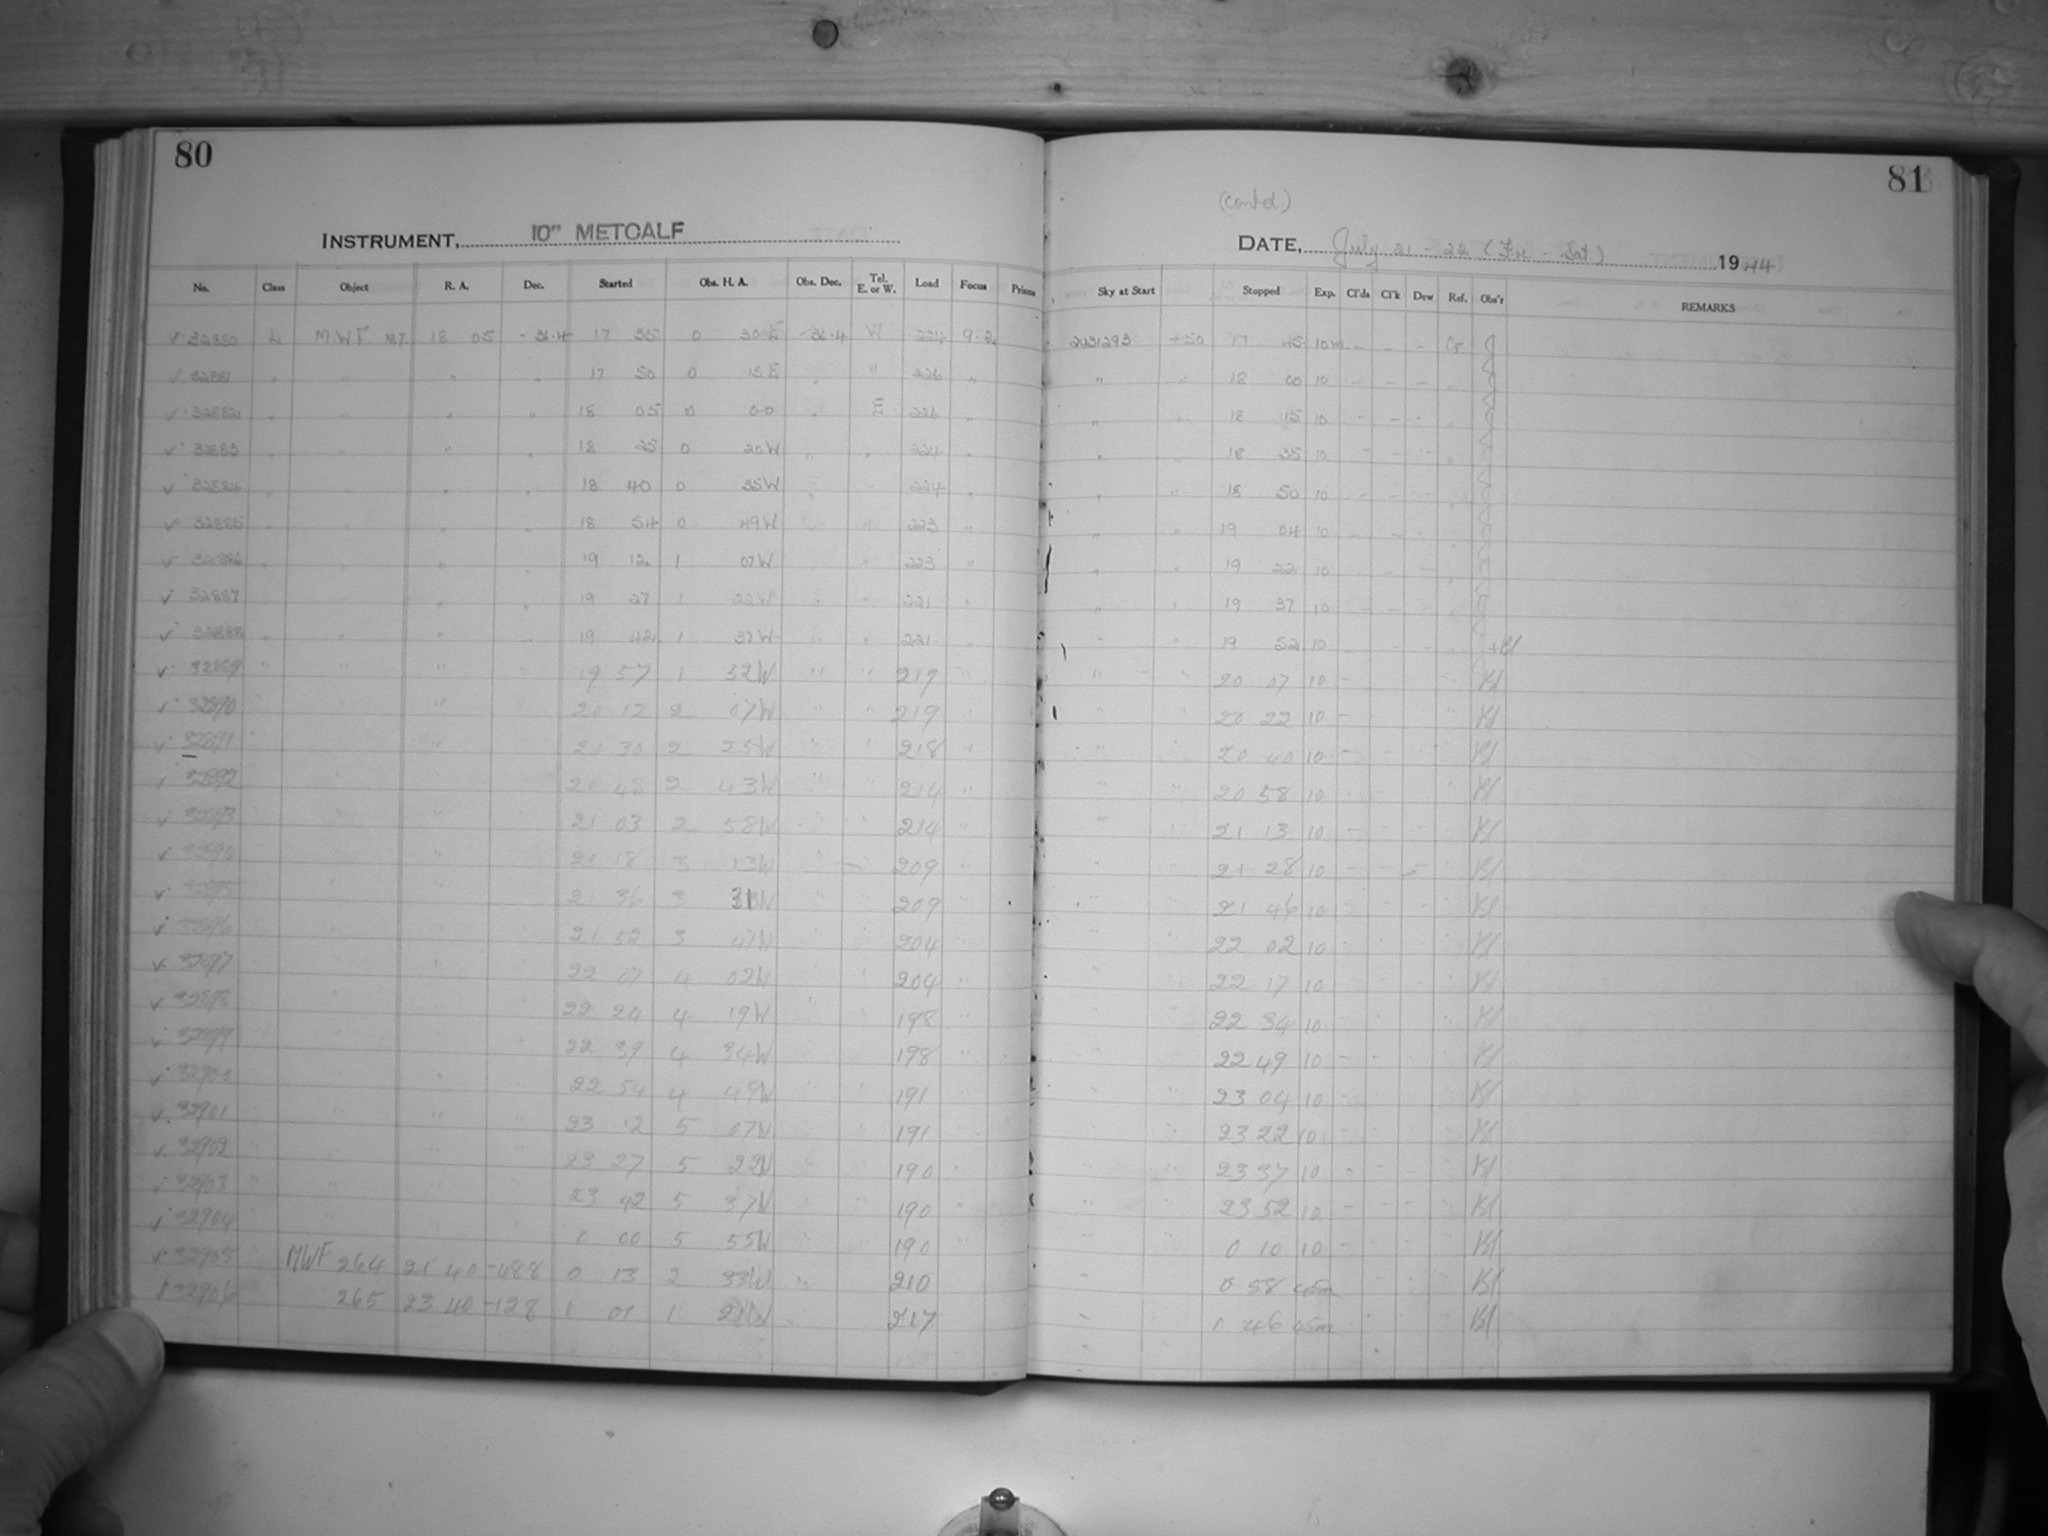 80
81
(contd.)
INSTRUMENT, 10" METCALF
DATE, July 21 - 22 (Fri - Sat.) 1944
No. Class Object R. A. Dec. Started Obs. H. A. Obs. Dec. Tel. E. or W. Load Focus Prisms Sky at Start Stopped Exp. Cl'ds Cl'k Dew Ref. Obs'r REMARKS
32880 L MWF 87 18 05 -36.4 17 35 0 30E -36.4 W 224 9.2 +50 17 45 10m - - - Cr J
32881 " " " " 17 50 0 15E " " 226 " " " 18 00 10 - - -
32882 " " " " 18 05 0 00 " E 226 " " " 18 15 10 - - -
32883 " " " 18 25 0 20W " " 224 " " " 18 35 10 - - -
32884 " " " " 18 40 0 35W " " 224 " " " 18 50 10 - - -
32885 " " " " 18 54 0 49W " " 223 " " " 19 04 10 - - -
32886 " " " 19 12 1 07W " " 223 " " " 19 22 10 - - -
32887 " " " 19 27 1 22W " " 221 " " " 19 37 10 - - -
32888 " " " " 19 42 1 37W " " 221 " " " 19 52 10 - - -
32889 " " " " 19 57 1 52W " " 219 " " " 20 07 10 -
32890 " " 20 12 2 07W " " 219 " " " 20 22 10 -
32891 " " 20 30 2 25W " " 218 " " " 20 40 10 -
32892 " " 20 48 2 43W " " 214 " " " 20 58 10 -
32893 " " 21 03 2 58W " " 214 " " " 21 13 10 -
32894 " " 21 18 3 13W " " 209 " " " 21 28 10 - -
32895 " " 21 36 3 31W " " 209 " " " 21 46 10 -
32896 " " 21 52 3 47W " " 204 " " " 22 02 10 -
32897 " " 22 07 4 02W " " 204 " " " 22 17 10 -
32898 " " 22 24 4 19W " " 198 " " " 22 34 10 -
32899 " " 22 39 4 34W " " 198 " " " 22 49 10 - -
32900 " " 22 54 4 49W " " 191 " " " 23 04 10 -
32901 " " 23 12 5 07W " " 191 " " " 23 22 10
32902 " " 23 27 5 22W " " 190 " " " 23 37 10 - -
32903 " " 23 42 5 37W " " 190 " " " 23 52 10 - - -
32904 " " 0 00 5 55W " " 190 " " " 0 10 10 -
32905 " MWF 264 21 40 -48.8 0 13 2 33W " 210 0 58 45m
32906 265 23 40 -12.8 1 01 1 21W " 217 1 46 45m